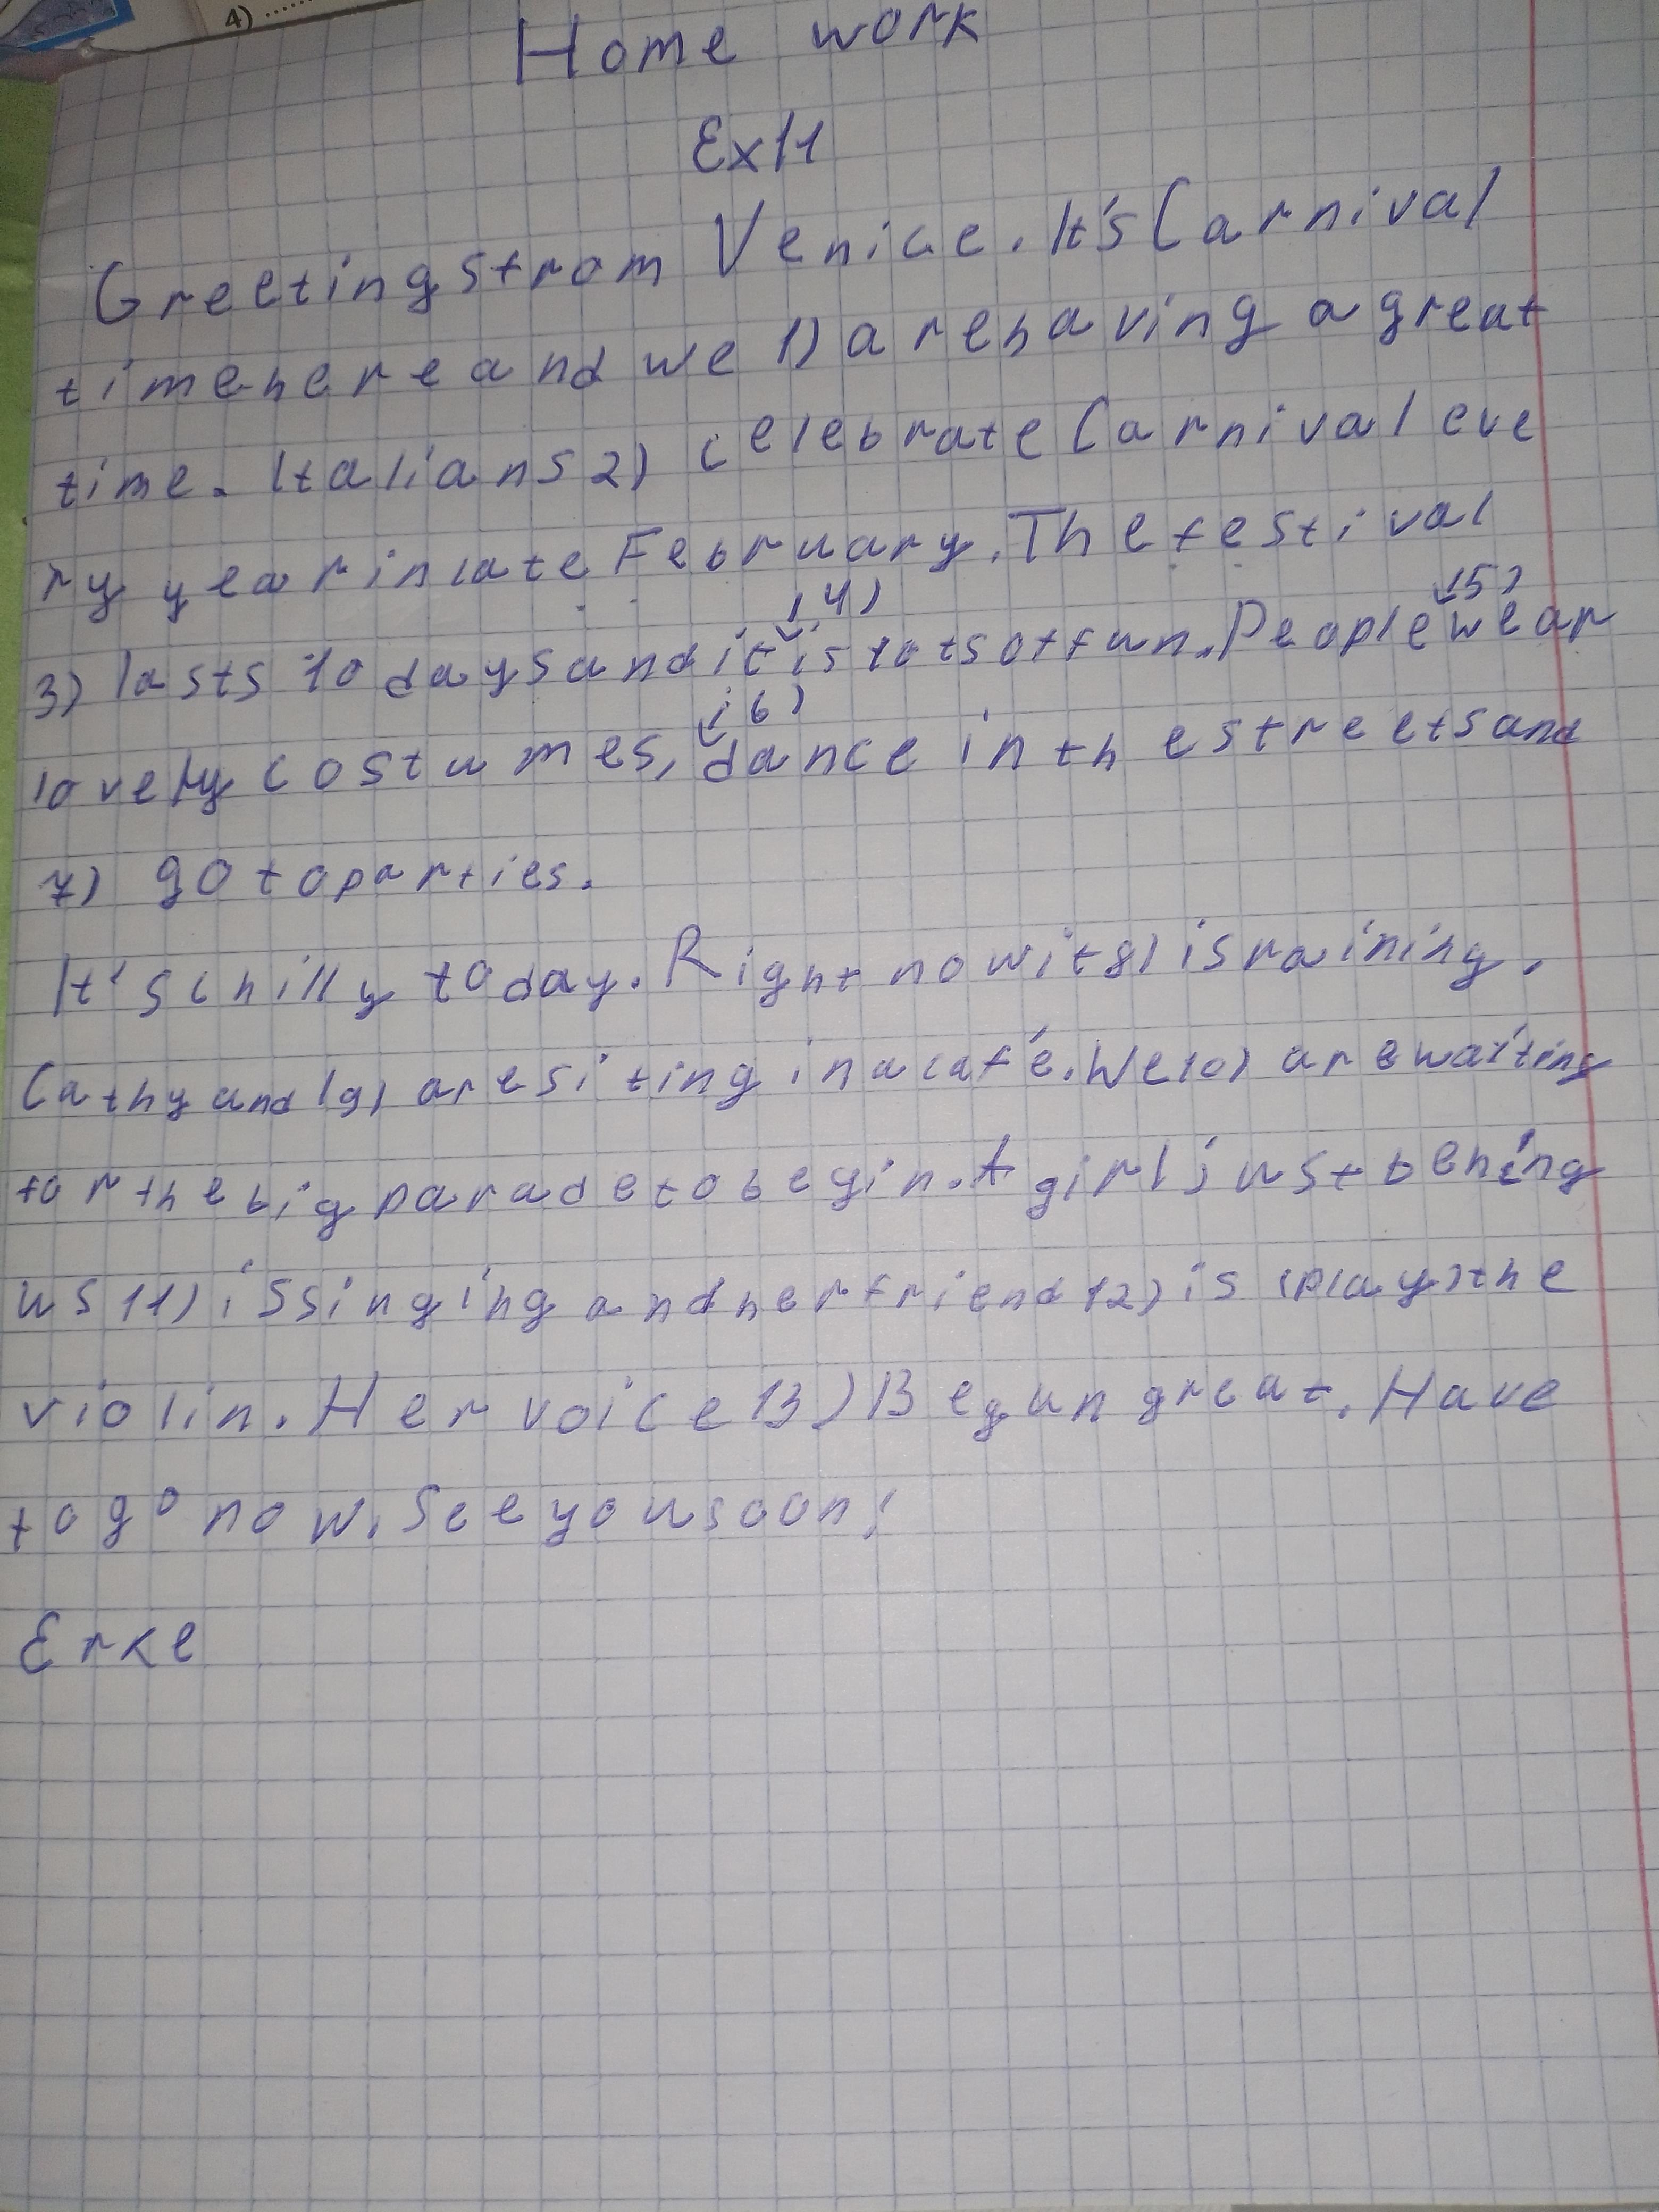 4) ..........
Home work
Ex11
Greetings from Venice. It's Carnival
time here and we 1) are having a great
time. Italians 2) celebrate Carnival eve
ry year in late February. The festival
(4) (5)
3) lasts 10 days and it is lots of fun. People wear
(6)
lovely costumes, dance in the streets and
7) go to parties.
It's chilly today. Right now it 8) is raining.
Cathy and I 9) are siting in a café. We 10) are waiting
for the big parade to begin. A girl just bening
us 11) is singing and her friend 12) is (play) the
violin. Her voice 13) Begun great. Have
to go now. See you soon!
Erke